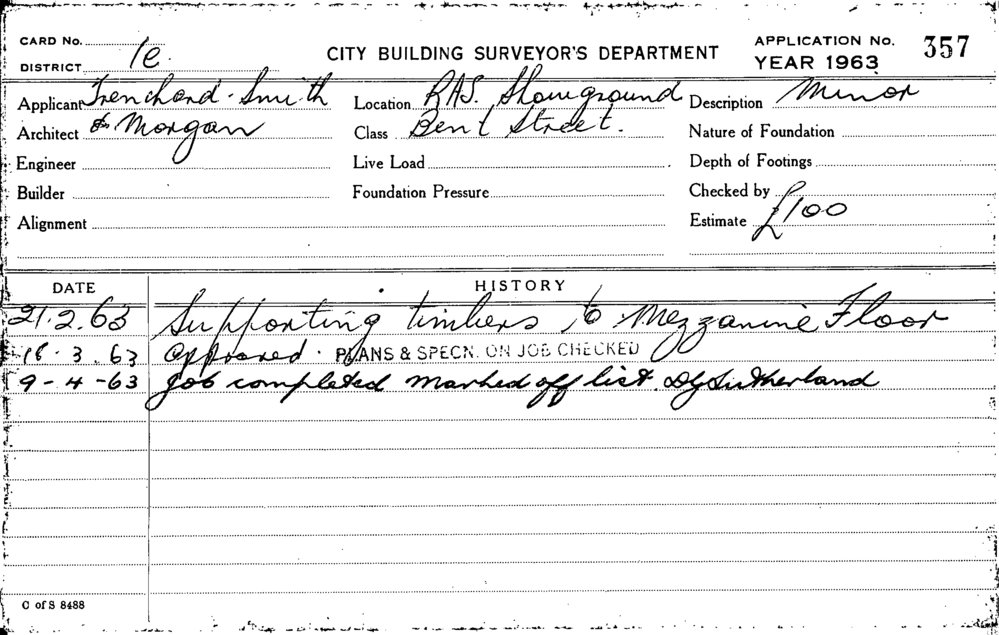 CARD No.
DISTRICT 1e.
CITY BUILDING SURVEYOR'S DEPARTMENT
APPLICATION No. 357
YEAR 1963
Applicant Trenchard-Smith Location RAS. Showground Description Minor
Architect & Morgan Class Bent Street. Nature of Foundation
Engineer Live Load Depth of Footings
Builder Foundation Pressure Checked by
Alignment Estimate £100
DATE HISTORY
21.2.63 Supporting timbers to Mezzanine Floor
18.3.63 Approved. PLANS & SPECN. ON JOB CHECKED
9-4-63 Job completed marked off list. Sutherland
C of S 8488